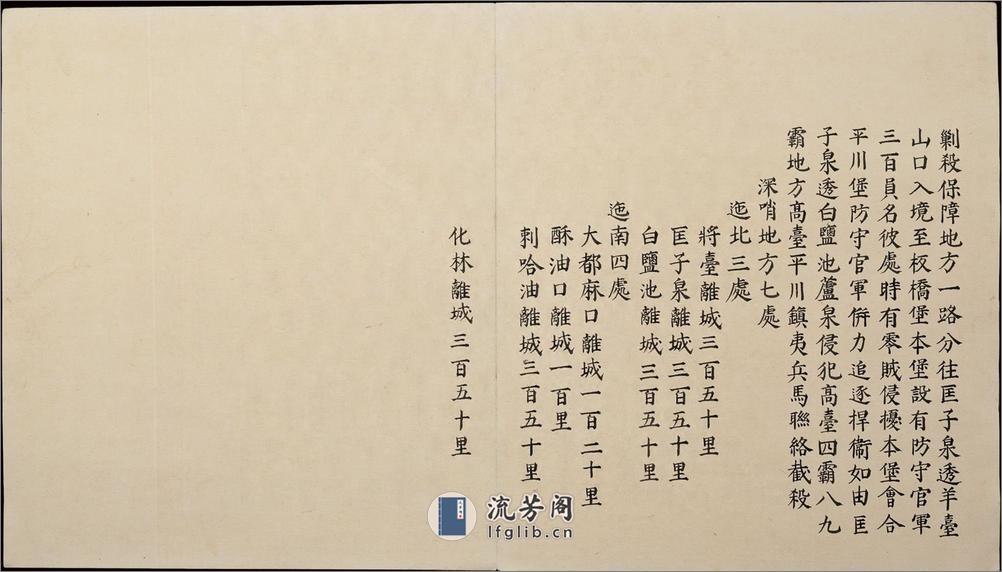 剿殺保障地方一路分往匡子泉透羊臺
山口入境至板橋堡本堡設有防守官軍
三百員名彼處時有零賊侵擾本堡會合
平川堡防守官軍倂力追逐捍衞如由匡
子泉透白鹽池蘆泉侵犯髙臺四霸八九
霸地方髙臺平川鎮夷兵馬聯絡截殺
深哨地方七處
迤北三處
將臺離城三百五十里
匡子泉離城三百五十里
白鹽池離城三百五十里
迤南四處
大都麻口離城一百二十里
酥油口離城一百里
刺哈油離城三百五十里
化林離城三百五十里
流芳阁
lfglib.cn